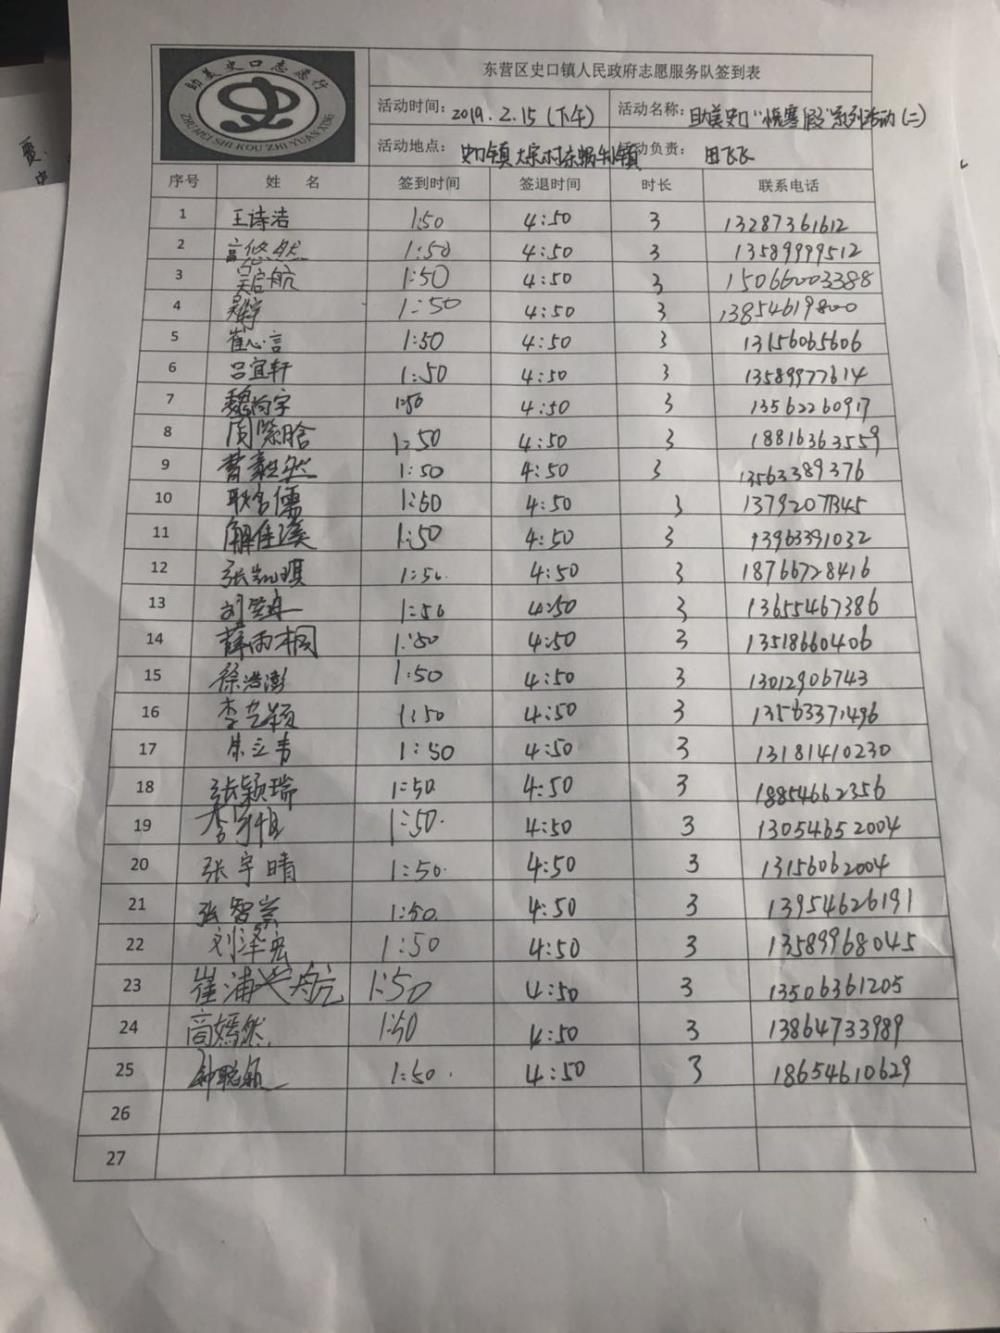 助美史口志愿行
ZHU MEI SHI KOU ZHI YUAN XING
东营区史口镇人民政府志愿服务队签到表
活动时间：2019.2.15（下午） 活动名称：助美史口“悦寒假”系列活动（二）
活动地点：史口镇大宋村东蜗牛小镇 活动负责：田飞飞
序号 姓 名 签到时间 签退时间 时长 联系电话
1 王诗洁 1:50 4:50 3 13287361612
2 高悠然 1:50 4:50 3 13589999512
3 吴启航 1:50 4:50 3 15066003388
4 1:50 4:50 3 13854619800
5 崔心言 1:50 4:50 3 13156065606
6 吕宜轩 1:50 4:50 3 13589977614
7 魏尚宇 1:50 4:50 3 13562260917
8 周紫晗 1:50 4:50 3 18816363559
9 曹毅然 1:50 4:50 3 13563389376
10 耿名儒 1:50 4:50 3
11 解佳溪 1:50 4:50 3 13963391032
12 张凯琪 1:50 4:50 3 18766728416
13 1:50 4:50 3 13655467386
14 薛雨桐 1:50 4:50 3 13518660406
15 徐浩澎 1:50 4:50 3 13012906743
16 李艺颖 1:50 4:50 3 13563371496
17 朱立韦 1:50 4:50 3 13181410230
18 张颖瑞 1:50 4:50 3 18854662356
19 1:50 4:50 3 13054652004
20 张宇晴 1:50 4:50 3 13156062004
21 张智崇 1:50 4:50 3 13954626191
22 刘泽宏 1:50 4:50 3 13589968045
23 崔浦航 1:50 4:50 3 13506361205
24 高嫣然 1:50 4:50 3 13864733989
25 钟聪航 1:50 4:50 3 18654610629
26
27